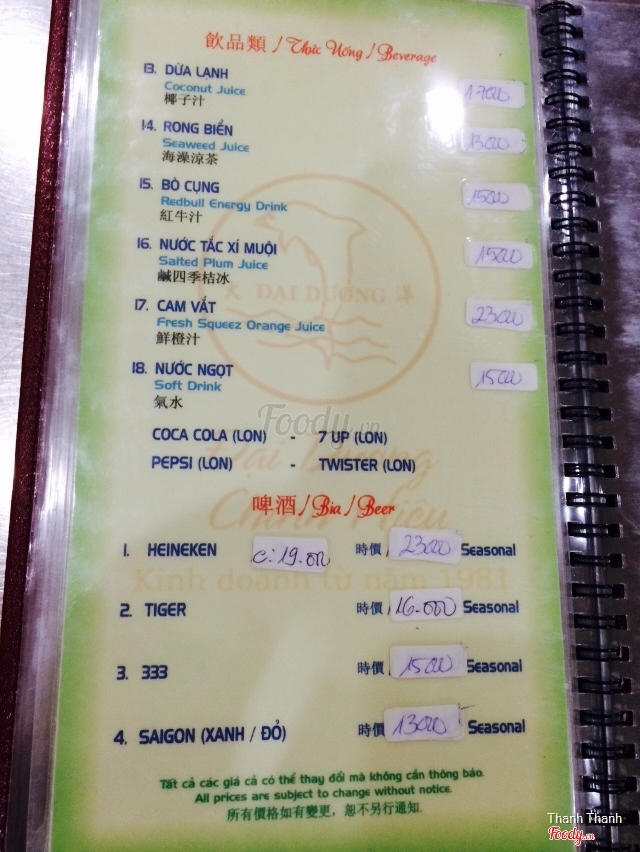 飲品類 / Thức Uống / Beverage
13. DỪA LẠNH
Coconut Juice
椰子汁
17000
14. RONG BIỂN
Seaweed Juice
海澡涼茶
13000
15. BÒ CỤNG
Redbull Energy Drink
紅牛汁
15000
16. NƯỚC TẮC XÍ MUỘI
Salted Plum Juice
鹹四季桔冰
15000
大 DAI DUONG 洋
17. CAM VẮT
Fresh Squeez Orange Juice
鮮橙汁
23000
18. NƯỚC NGỌT
Soft Drink
氣水
15000
Foody.vn
COCA COLA (LON) - 7 UP (LON)
PEPSI (LON) - TWISTER (LON)
Đại Dương
啤酒 / Bia / Beer
Chính Hiệu
1. HEINEKEN c: 19.000 時價 / 23000 Seasonal
Kinh doanh từ năm 1981
2. TIGER 時價 / 16.000 Seasonal
3. 333 時價 / 15000 Seasonal
4. SAIGON (XANH / ĐỎ) 時價 / 13000 Seasonal
Tất cả các giá cả có thể thay đổi mà không cần thông báo.
All prices are subject to change without notice.
所有價格如有變更，恕不另行通知.
Thanh Thanh
Foody.vn